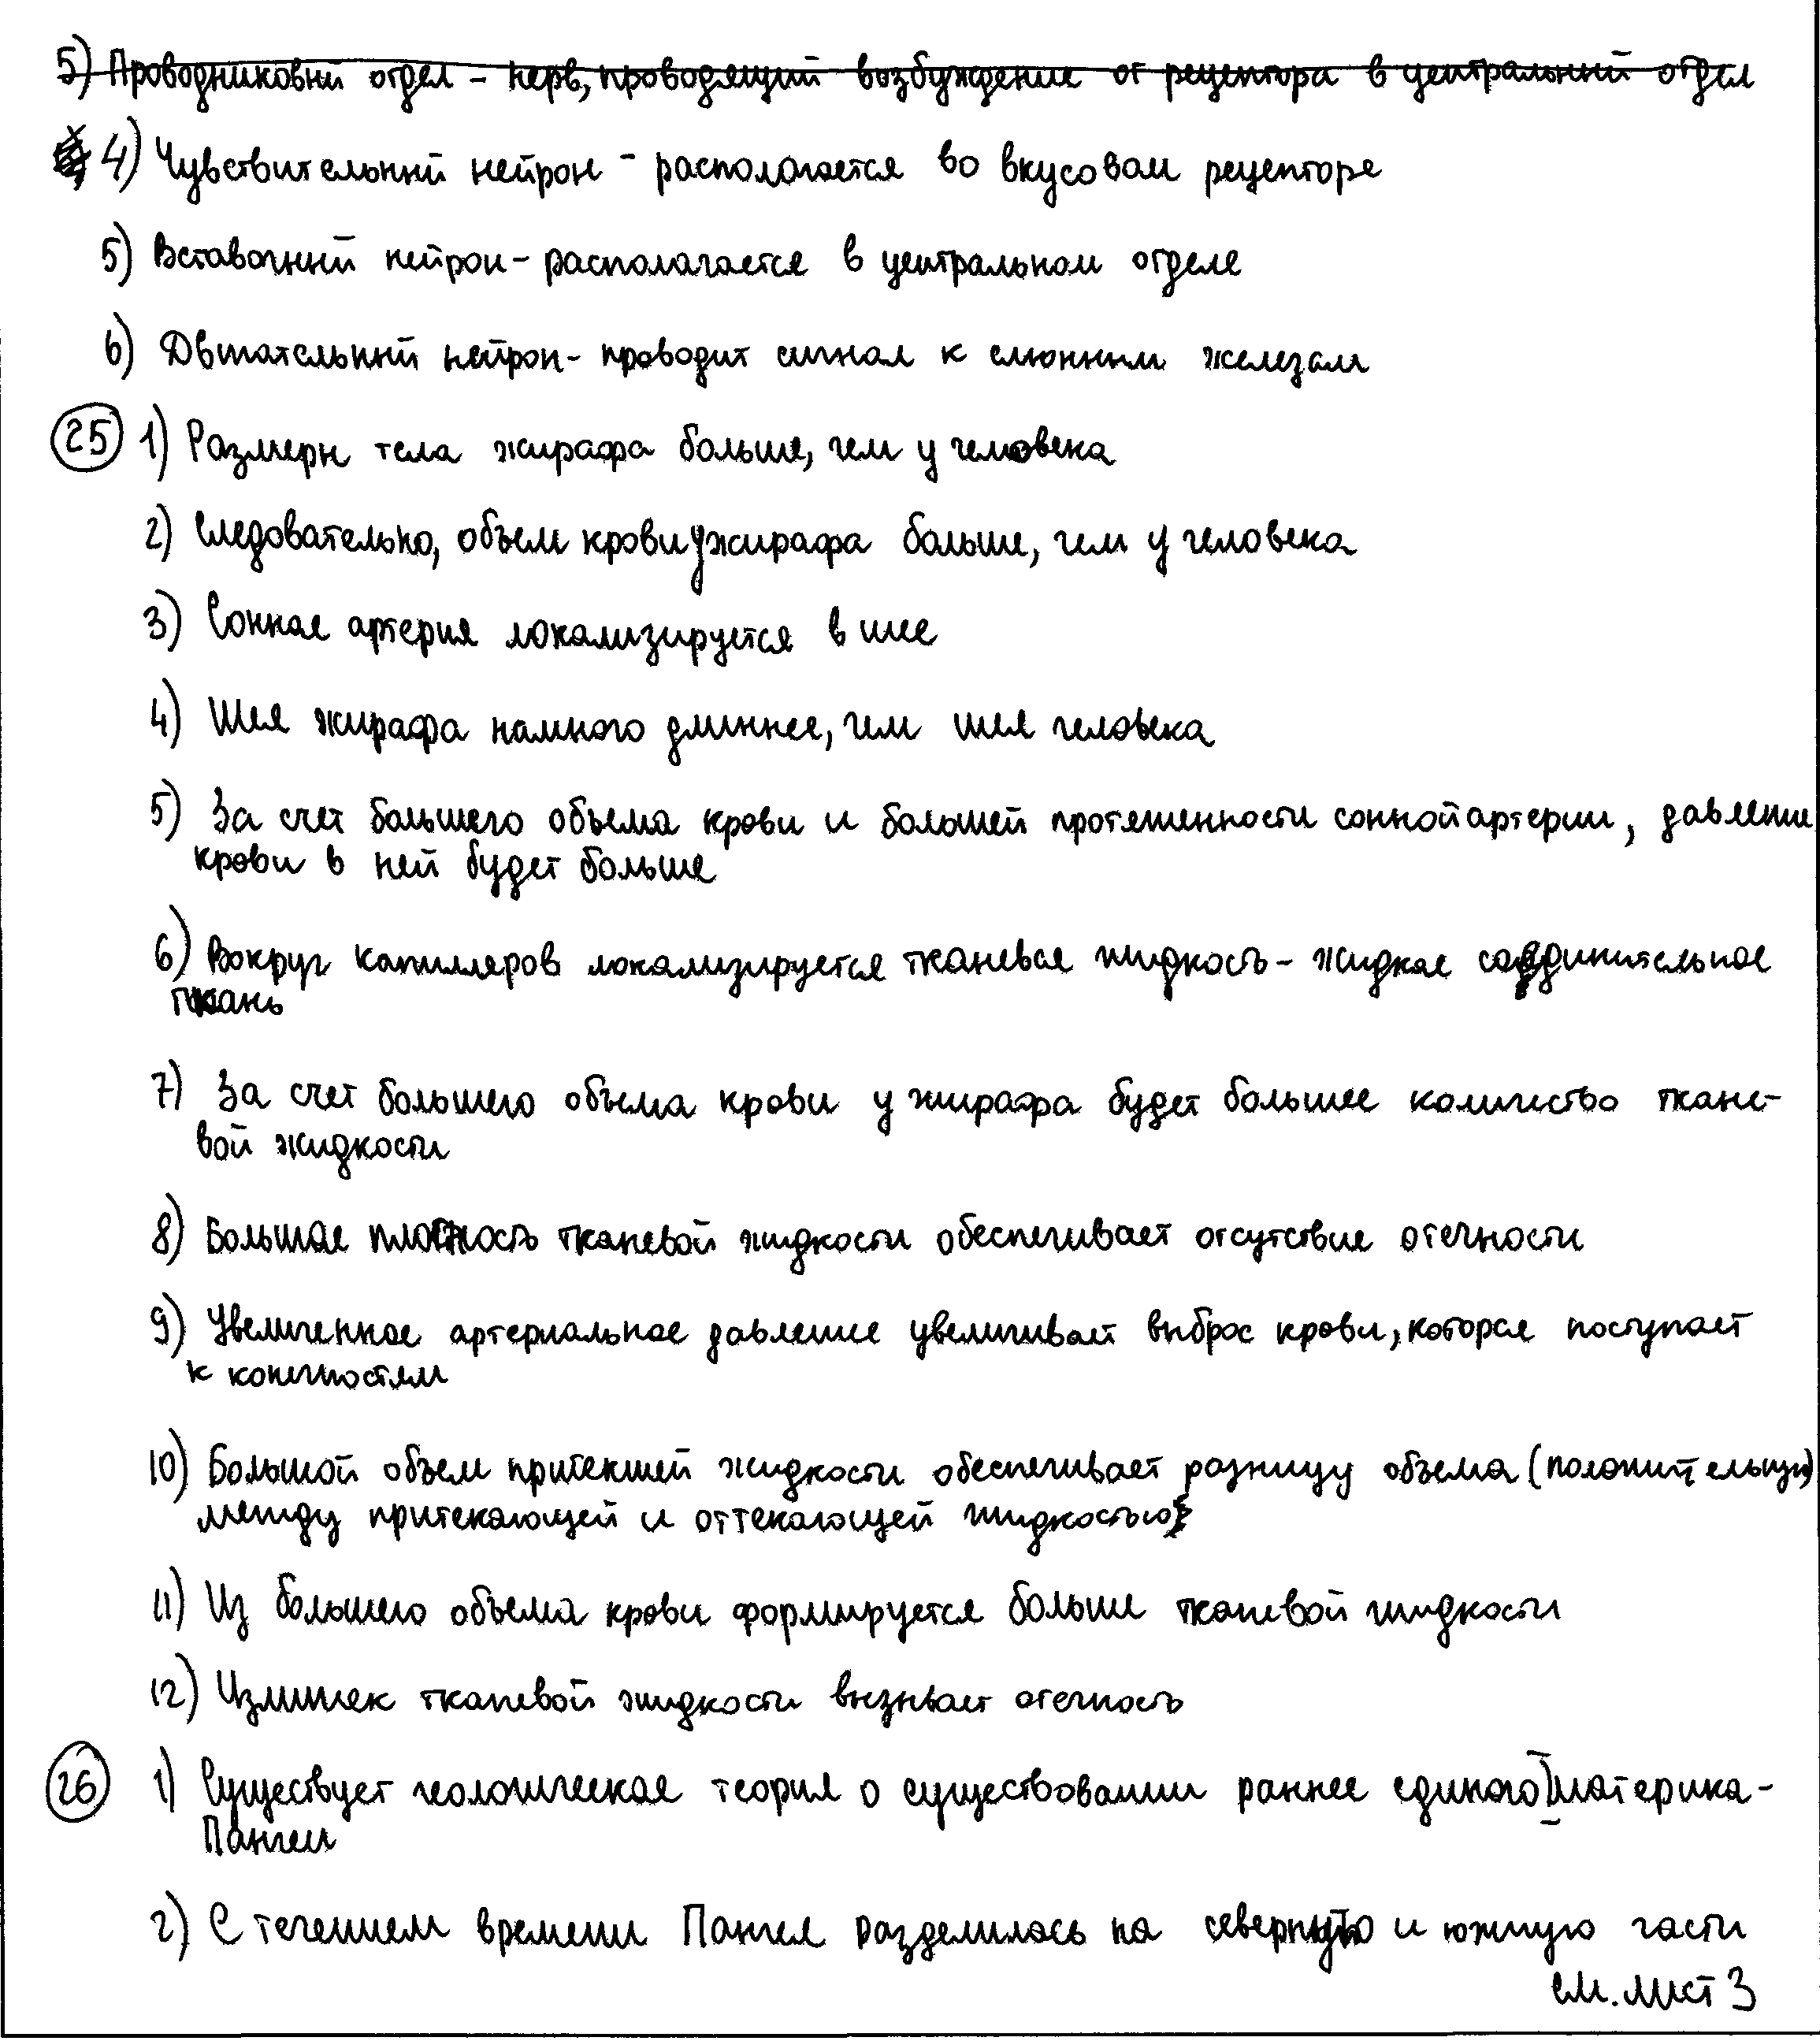 5) Проводниковый отдел - нерв, проводящий возбуждение от рецептора в центральный отдел
4) Чувствительный нейрон - располагается во вкусовом рецепторе
5) Вставочный нейрон - располагается в центральном отделе
6) Двигательный нейрон - проводит сигнал к слюнным железам
25 1) Размеры тела жирафа больше, чем у человека
2) Следовательно, объем крови у жирафа больше, чем у человека
3) Сонная артерия локализируется в шее
4) Шея жирафа намного длиннее, чем шея человека
5) За счет большего объема крови и большей протяженности сонной артерии, давление
крови в ней будет больше
6) Вокруг капилляров локализируется тканевая жидкость - жидкая соединительная
ткань
7) За счет большего объема крови у жирафа будет большее количество ткане-
вой жидкости
8) Большая плотность тканевой жидкости обеспечивает отсутствие отечности
9) Увеличенное артериальное давление увеличивает выброс крови, которая поступает
к конечностям
10) Большой объем притекшей жидкости обеспечивает разницу объема (положительную)
между притекающей и оттекающей жидкостью
11) Из большего объема крови формируется больше тканевой жидкости
12) Излишек тканевой жидкости вызывает отечность
26 1) Существует геологическая теория о существовании раннее единого материка -
Пангеи
2) С течением времени Пангея разделилась на северную и южную части
см. лист 3